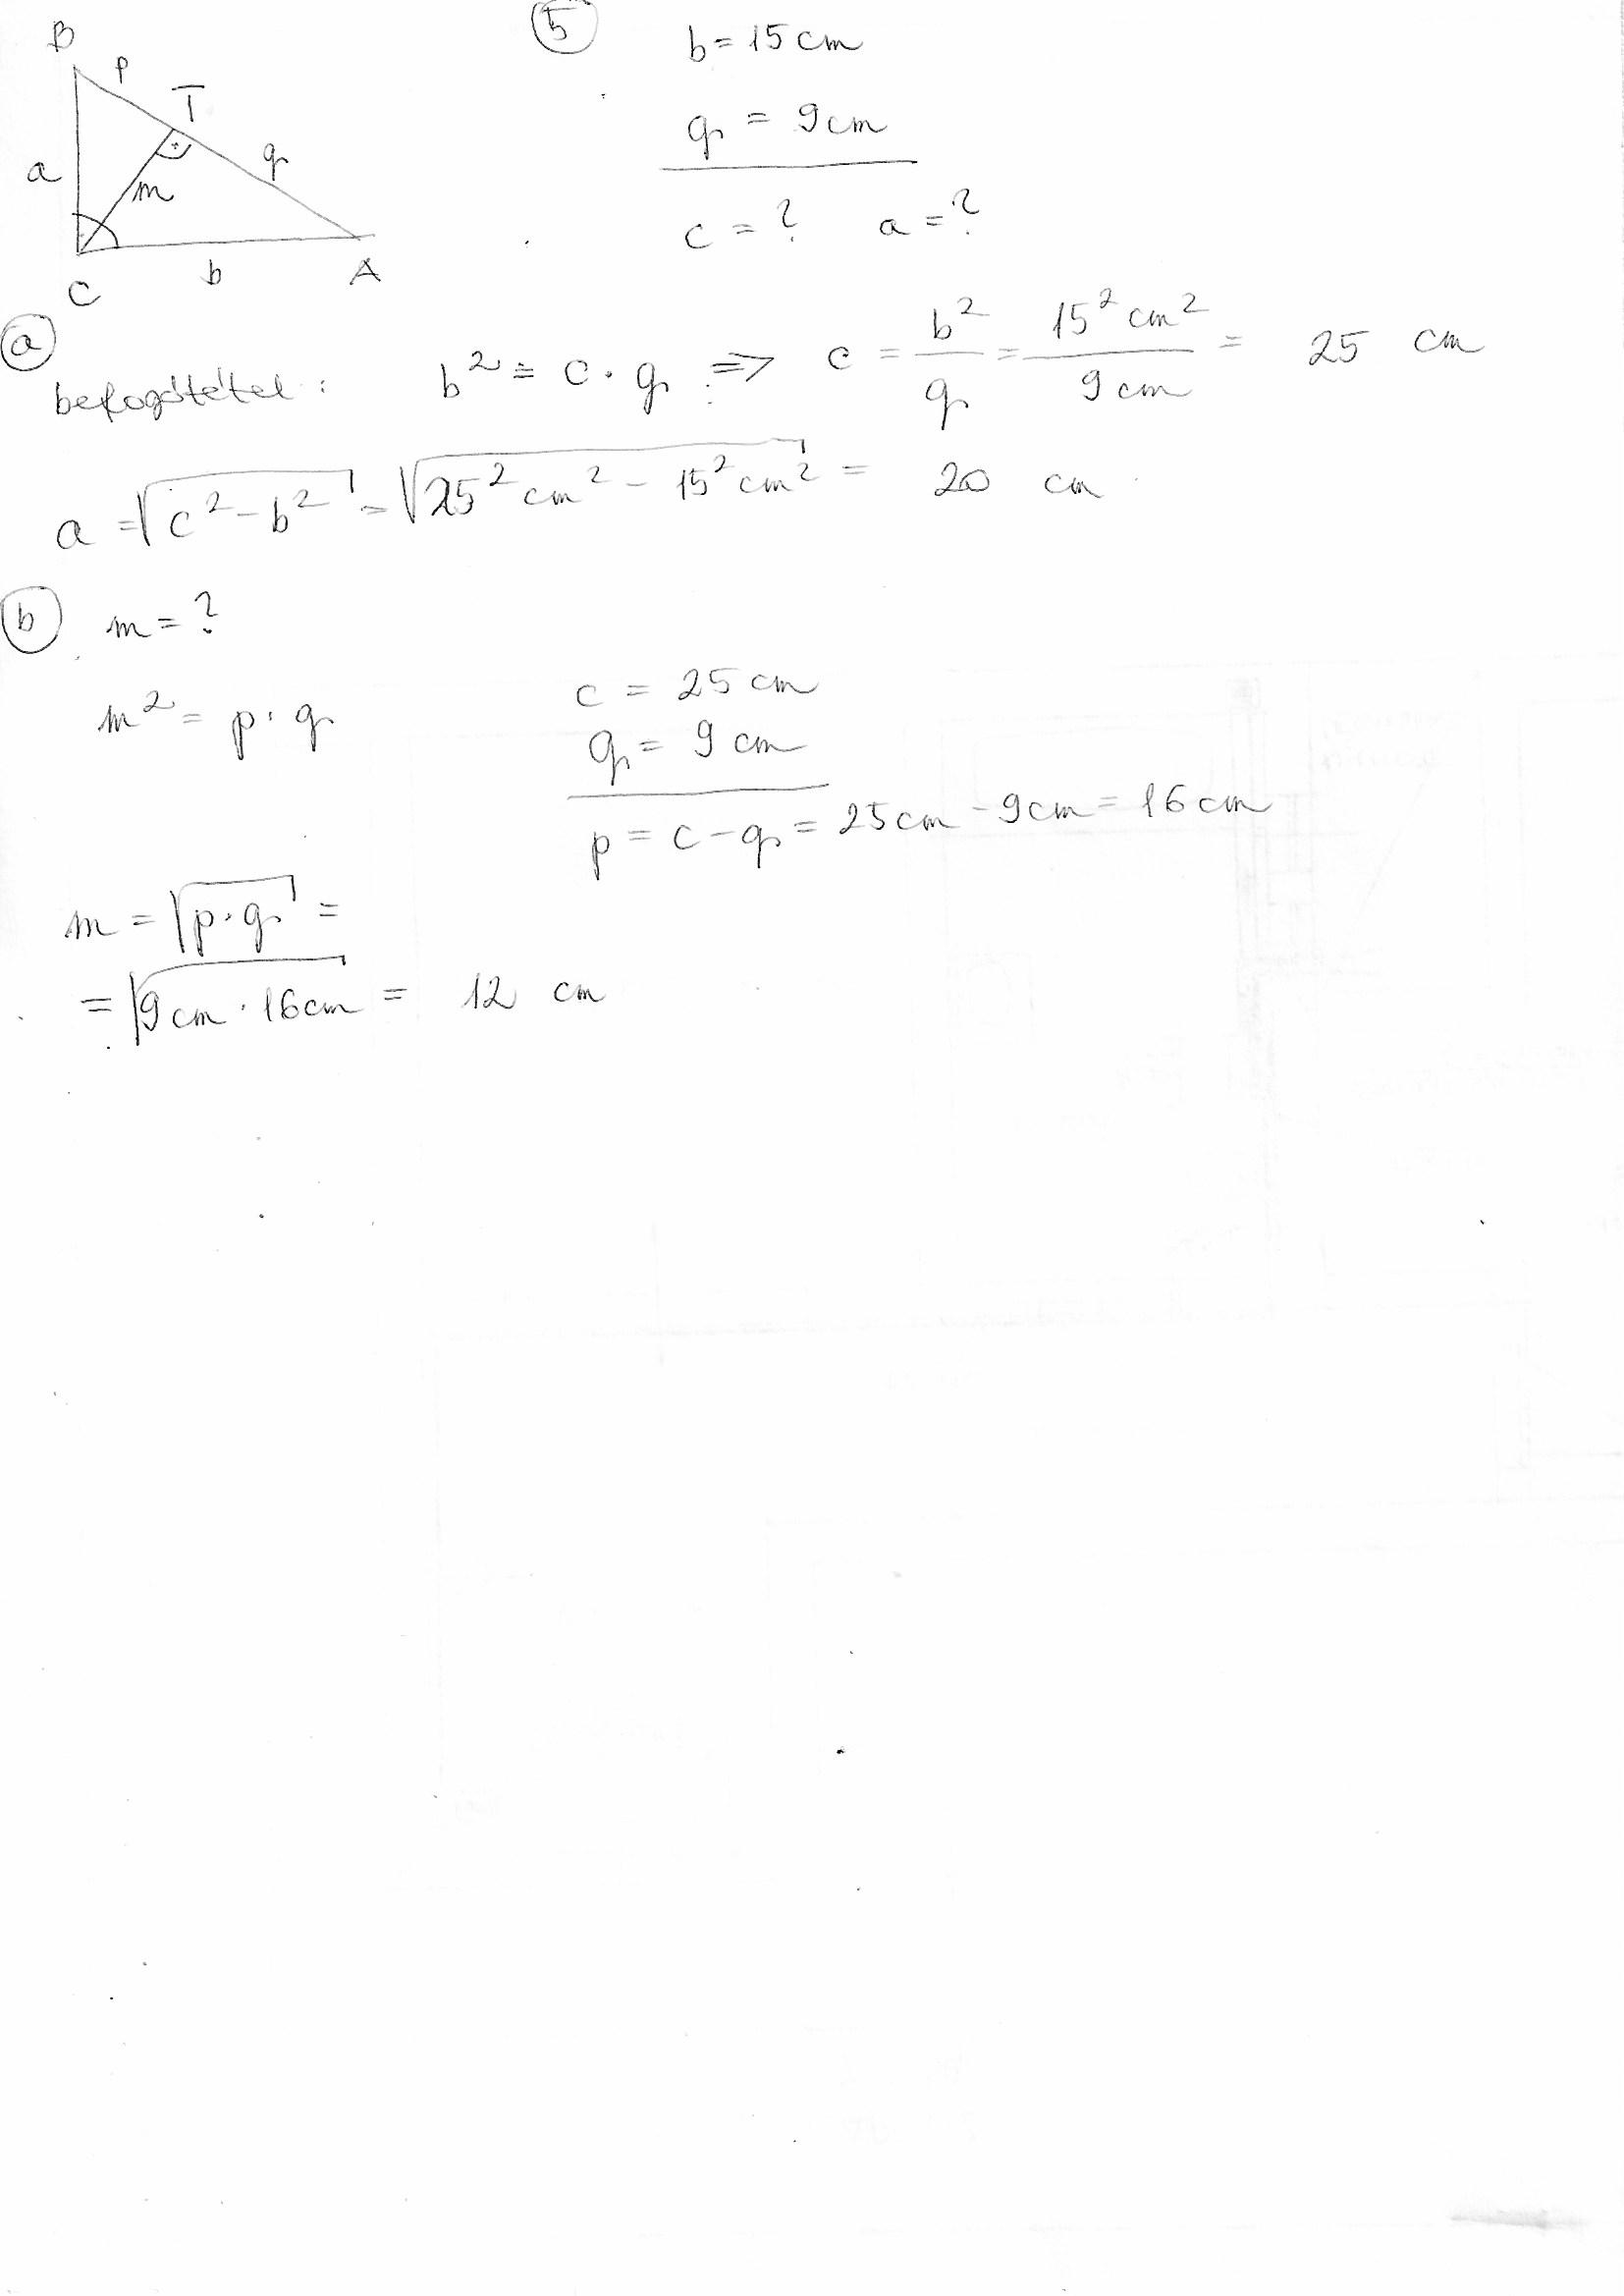 B
p
T
a
q
m
C
b
A
5
b = 15 cm
q = 9 cm
c = ? a = ?
a
befogótétel : b² = c · q => c = b²/q = 15² cm²/9 cm = 25 cm
a = √(c² - b²) = √(25² cm² - 15² cm²) = 20 cm
b m = ?
m² = p · q
c = 25 cm
q = 9 cm
p = c - q = 25 cm - 9 cm = 16 cm
m = √(p · q) =
= √(9 cm · 16 cm) = 12 cm